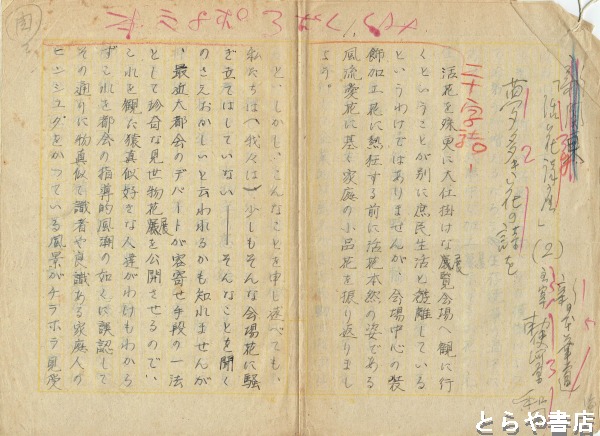 活花講座」(2)
二十字詰。
活花を殊更に大仕掛けな展覧会場へ観に行
くということが別に庶民生活と遊離している
というわけではありませんが、会場中心の装
飾加工花に熱狂する前に活花本然の姿である
風流愛花に基く家庭の小品花を振り返りまし
ょう。
と、しかし、こんなことを申し述べても、
私たちは(我々は)少しもそんな会場花に騒
ぎ立てはしていない——そんなことを聞く
のさえおかしいと云われるかも知れませんが
、最近大都会のデパートが客寄せ手段の一法
として珍奇な見世物花展を公開させるので、
これを観た猿真似好きな人達がわけもわから
ずこれを都会の指導的風潮の如くに誤認して
その通りに物真似て識者や良識ある家庭人の
ヒンシュクをかっている風景がチラホラ見受
とらや書店